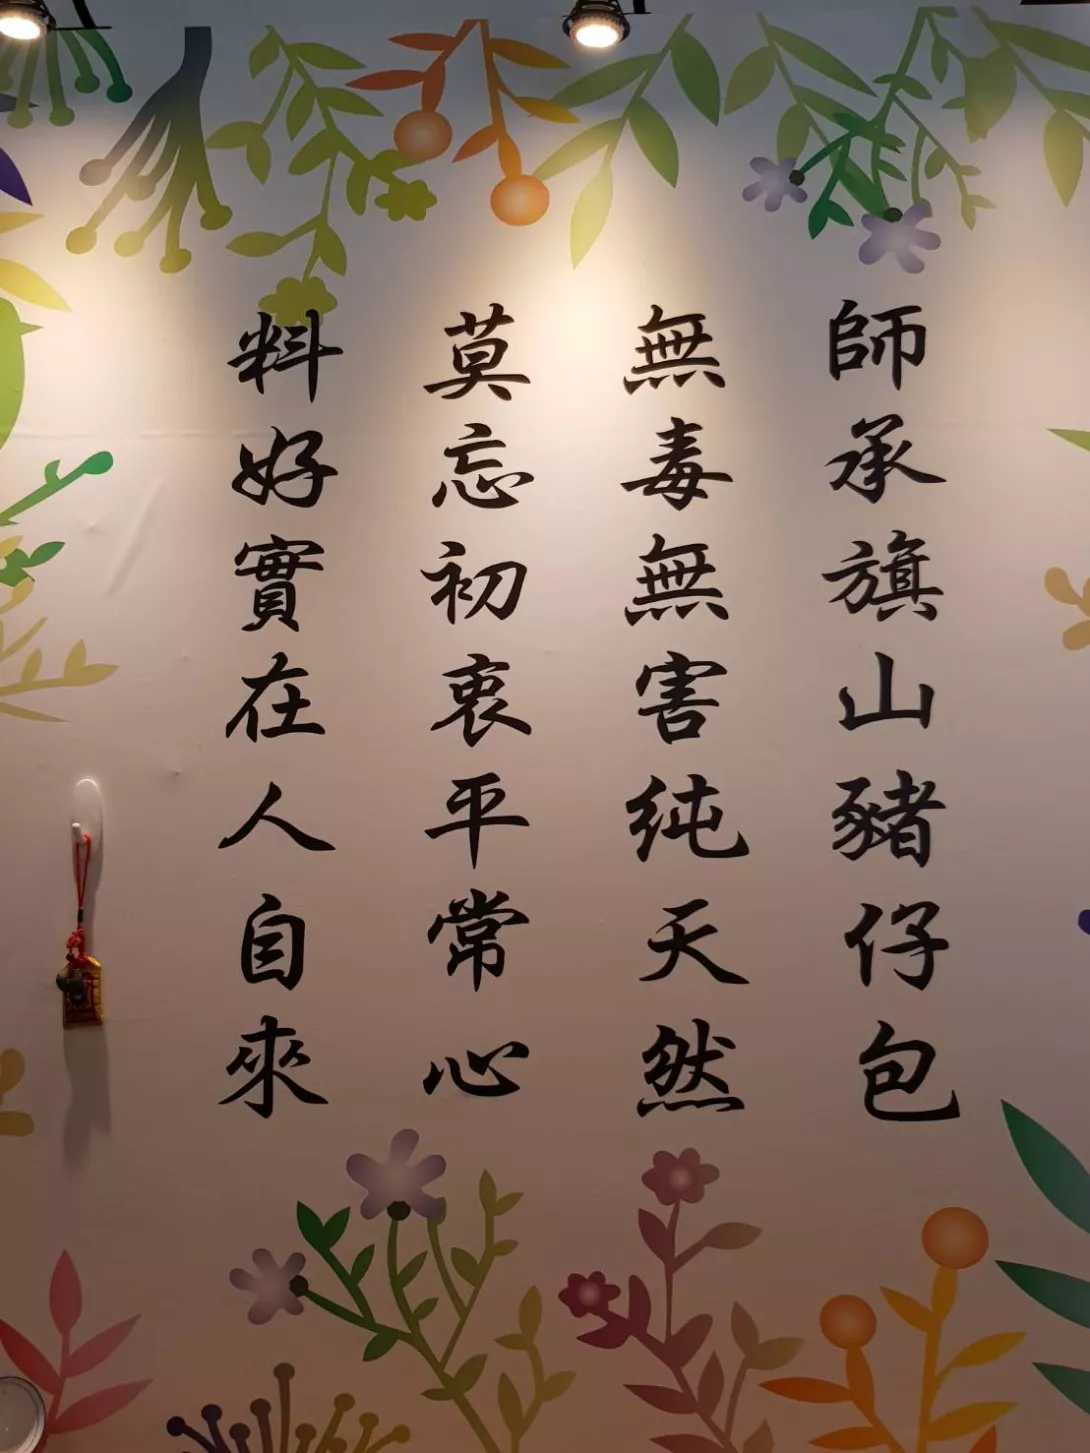 師承旗山豬仔包
無毒無害純天然
莫忘初衷平常心
料好實在人自來